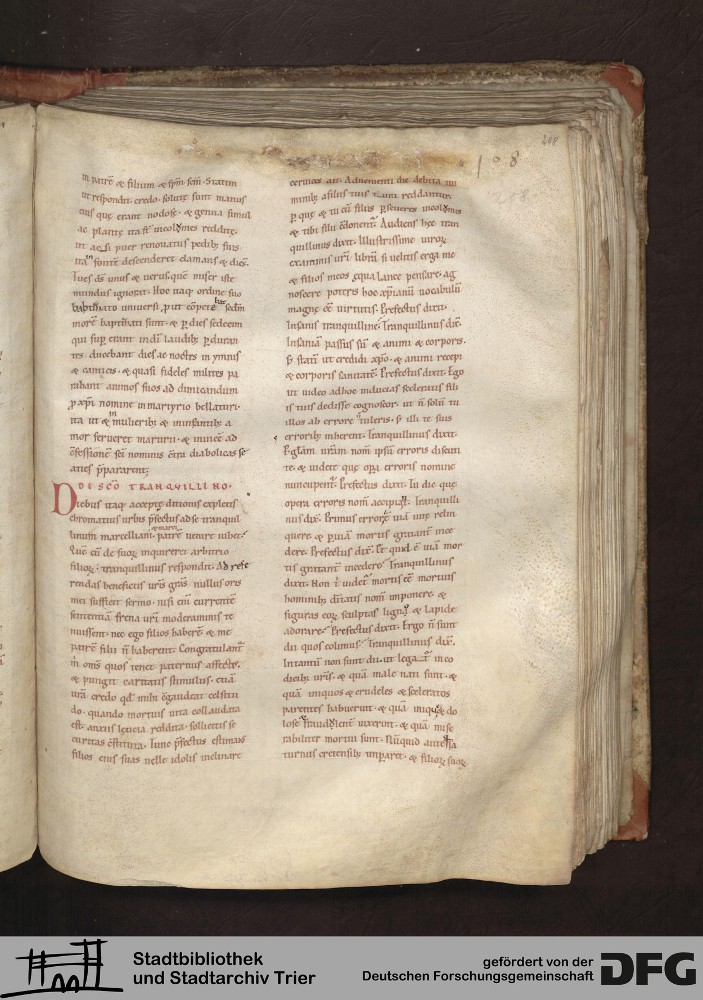 108
208
in patrē & filium & spm̄ scm̄. Statim
ut respondit credo. solutę sunt manus
eius quę erant nodosę. & genua simul
ac plantę ita ut incolomes redditę.
ut ac si puer renouatus pedib; suis
in fontē descenderet clamans & dicē.
Tu es dš unus & uerus. quē miser iste
mundus ignorat. Hoc itaq; ordine suo
baptizato uniuersi, prout cōpetebat sedm
morē baptizati sunt. & p dies sedecim
qui sup erant in dī laudib; pduran
tes. ducebant dies ac noctes in ymnis
& canticis. & quasi fideles milites pa
rabant animos suos ad dimicandum
p xpī nomine in martyrio bellaturi.
ita ut & in mulierib; & in infantib; a
mor ferueret martyrii. & inuicē ad
cōfessionē sci nominis cōtra diabolicas se
acies prępararent;
DE SCŌ TRANQUILLINO.
Diebus itaq; acceptę ditionis expletis
chromatius urbis pfectus ad se tranquil
linum marcelliani & marci patrē uenire iubet.
Quē cū de suoꝝ inquireret arbitrio
filioꝝ. tranquillinus respondit. Ad refe
rendas beneficiis uris grās. nullus oris
mei sufficit sermo. nisi enī currentē
sententiā frena uri moderaminis te
nuissent. nec ego filios haberē. & me
patrē filii n̄ haberent. Congratulant̄
m̄ oms quos tenet paternus affectus.
& pungit caritatis stimulus. etiā
urā credo qd mihi cōgaudeat celsitu
do. quando mortuis uita collaudata
est. anxiis leticia reddita. sollicitis se
curitas cōstituta. Tunc pfectus estimans
filios eius suas uelle idolis inclinare
ceruices ait. Aduenienti die debita nu
minib; a filiis tuis tura reddantur.
p quę & tu cū filiis pseueres incolomis
& tibi filii cōdonent̄. Audiens hęc tran
quillinus dixit. Illustrissime uiroꝝ
examinis uri librā si uelitis erga me
& filios meos ęqua lance pensare. ag
noscere poteris hoc xp̄ianū uocabulū
magnę eē uirtutis. Prefectus dixit.
Insanis tranquilline. Tranquillinus dix̄.
Insaniā passus sū & animi & corporis.
s; statī ut credidi xpo. & animi recepi
& corporis sanitatē. Prefectus dixit. Ego
ut uideo ad hoc inducias sceleratis fili
is tuis dedisse cognoscor. ut n̄ solū tu
illos ab errore n̄ tuleris. s; illi te suis
errorib; inherent. Tranquillinus dixit.
P glam urām nom̄ ipsū erroris discuti
te. & uidete quę opa erroris nomine
nuncupent̄. Prefectus dixit. Tu dic quę
opera erroris nom̄ accipiant. Tranquilli
nus dix̄. Primus error ē uiā uitę relin
quere. & p uiā mortis gratanter ince
dere. Prefectus dix̄. Et quid ē uiā mor
tis gratanter incedere. Tranquillinus
dixit. Non t̄ uidet̄ mortis eē mortuis
hominib; diuitatis nom̄ imponere. &
figuras eoꝝ sculptas ligno & lapide
adorare. Prefectus dixit. Ergo n̄ sunt
dii quos colimus. Tranquillinus dix̄.
In tantū non sunt dii. ut legant̄ in co
dicib; uris. & quā male nati sunt. &
quā iniquos & crudeles & sceleratos
parentes habuerunt. & quā iniq & do
lose & fraudulent uixerunt. & quā mise
rabiliter mortui sunt. Nūquid ante sa
turnus cretensib; impararet. & filioꝝ suoꝝ
Stadtbibliothek
und Stadtarchiv Trier
gefördert von der
Deutschen Forschungsgemeinschaft
DFG